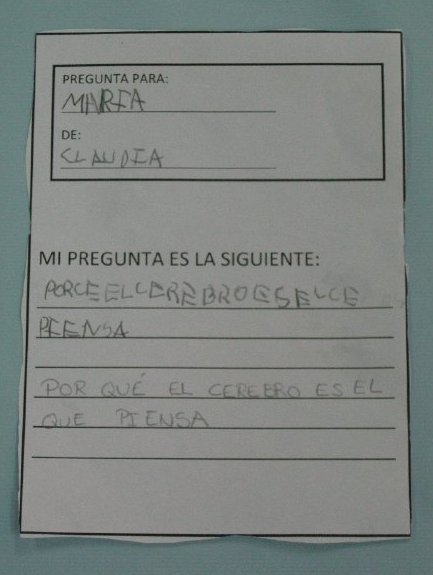 PREGUNTA PARA:
MARIA
DE:
CLAUDIA
MI PREGUNTA ES LA SIGUIENTE:
PORCE EL CEREBRO ES EL CE
PIENSA
POR QUÉ EL CEREBRO ES EL
QUE PIENSA